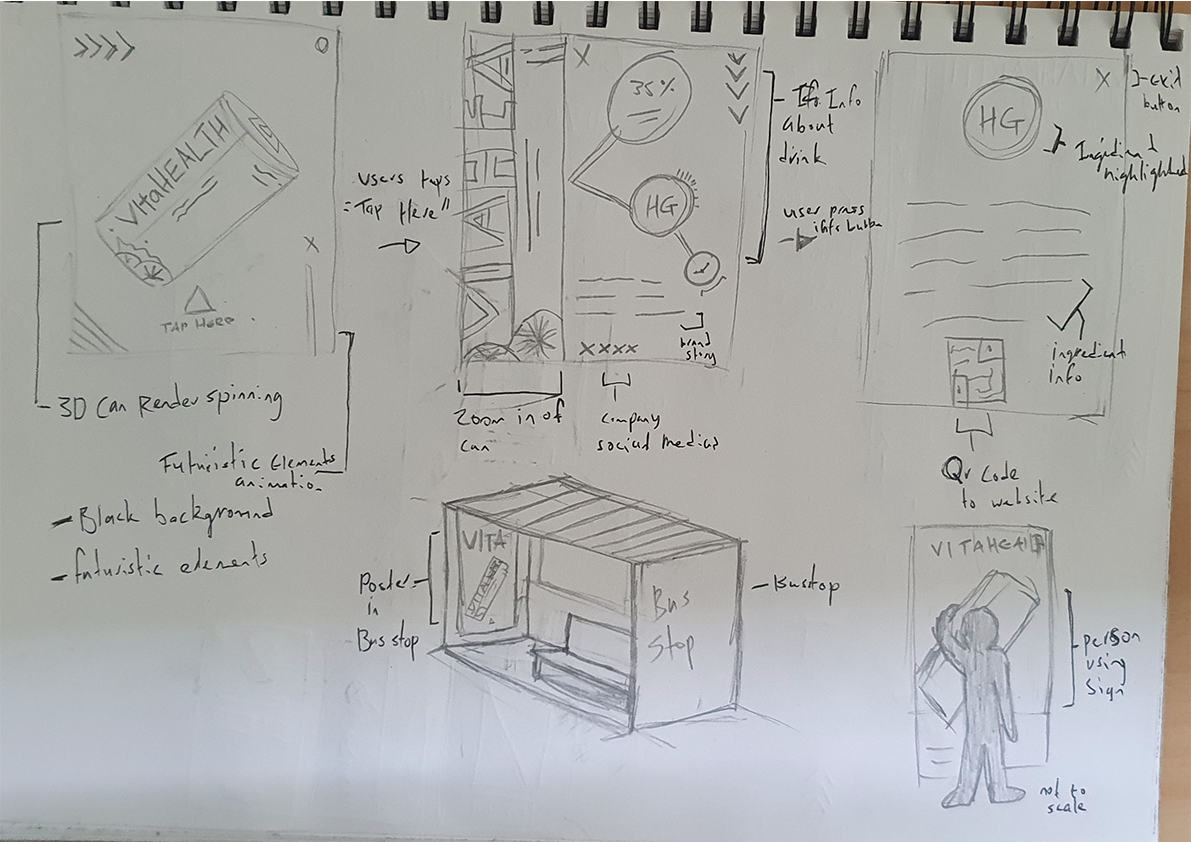 VitaHEALTH
X
TAP HERE
3D Can Render spinning
Futuristic Elements
animation
- Black background
- futuristic elements
Users taps
"Tap Here"
X
35%
HG
XXXX
brand
story
Zoom in of
can
Company
social medias
Info
about
drink
user press
info button
X
HG
exit
button
Ingredient
highlighted
ingredient
info
Qr code
to website
VITA
VITAHEALTH
Poster
in
Bus stop
Bus
stop
Busstop
VITAHEALTH
person
using
sign
not to
scale